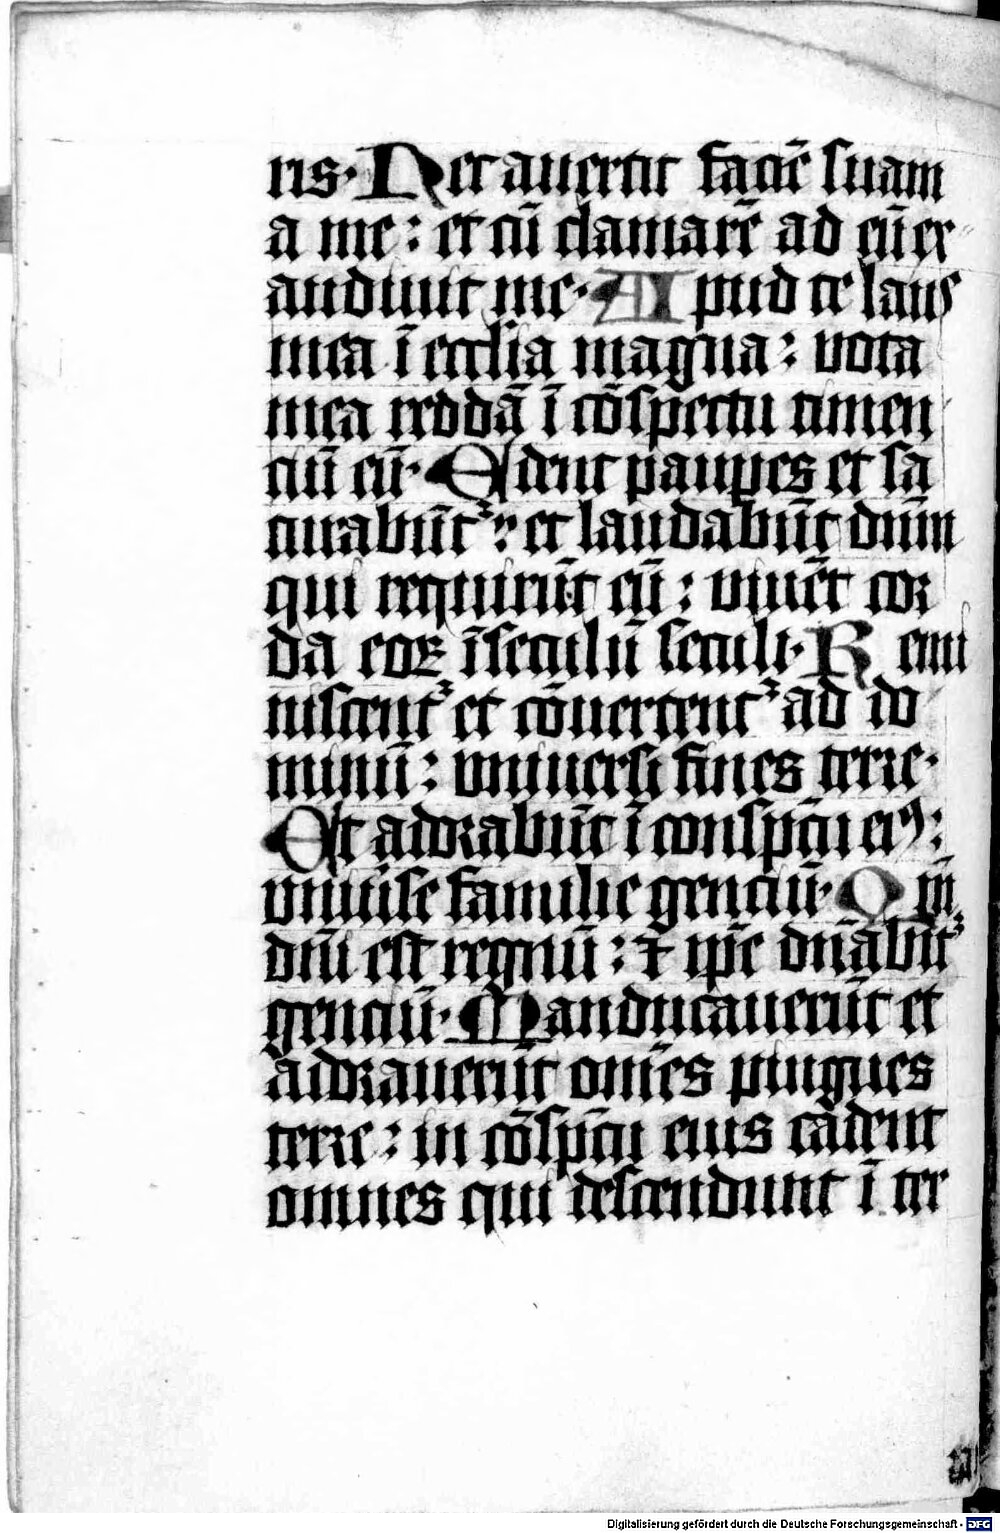 ris. Nec auertit faciē suam
a me : et cū clamarē ad eū ex
audiuit me. Apud te laus
mea ī ecclsia magna : vota
mea reddā ī cōspectu timen
ciū eū. Edent pauꝑes et sa
turabūtᷣ : et laudabūt dūm
qui requirūt eū : viuēt cor
da eoꝝ īseculū seculi. Remi
niscentᷣ et cōuertentᷣ ad do
minū : vniuersi fines terre.
Et adorabūt ī conspc̄tu eiꝰ :
vniūse familie genciū. Qm̄
dn̄i est regnū : ⁊ ip̄e dn̄abitᷣ
genciū. Manducauerūt et
adorauerūt om̄es pingues
terre : in cōspc̄tu eius cadent
omnes qui descendunt ī ter
Digitalisierung gefördert durch die Deutsche Forschungsgemeinschaft - DFG